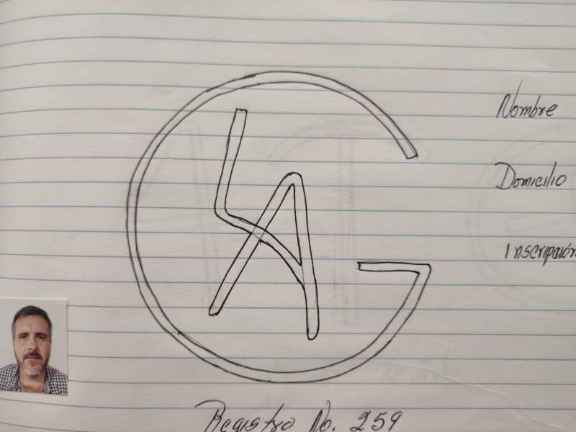 Nombre
Domicilio
Inscripción
GLA
Registro No. 259